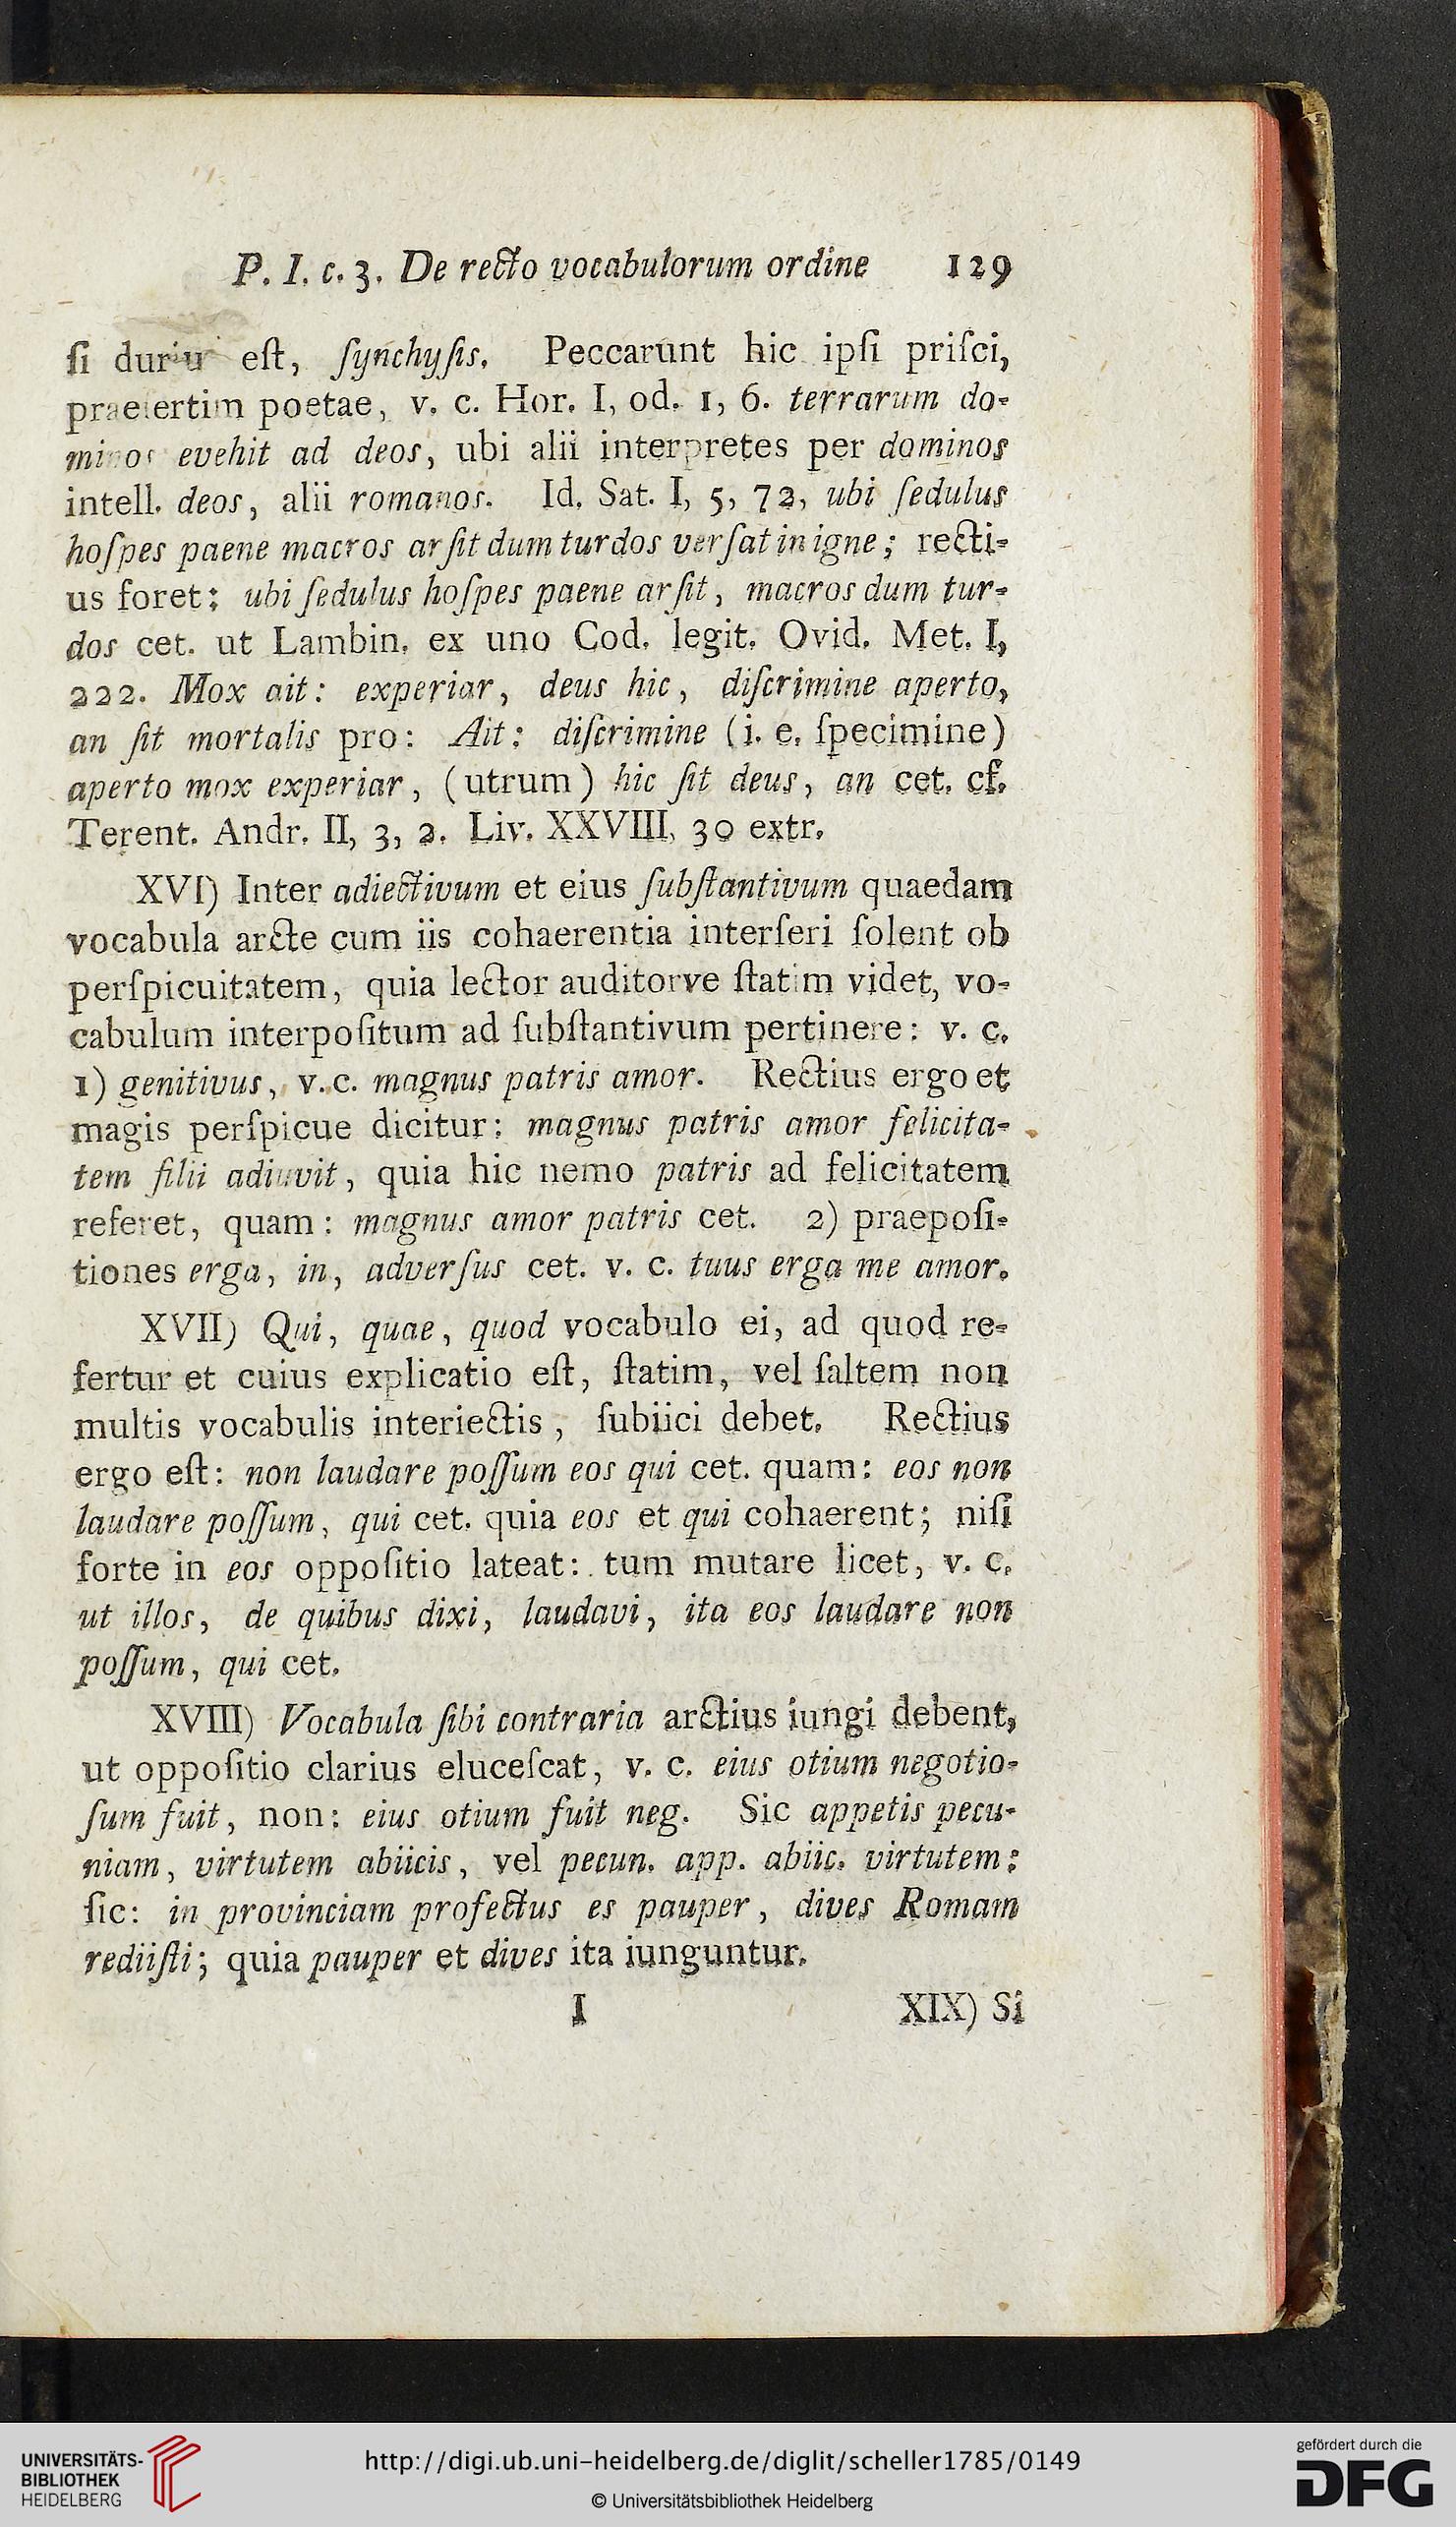 P. I. c. 3. De recto vocabulorum ordine 129
ſi eſt, ſynchyſis. Peccarunt hic ipſi priſci,
praeſertim poetae, v. c. Hor. I, od. 1, 6. terrarum do-
minos evehit ad deos, ubi alii interpretes per dominos
intell. deos, alii romanos. Id. Sat. I, 5, 72, ubi ſedulus
hoſpes paene macros arſit dum turdos verſat in igne; recti-
us foret: ubi ſedulus hoſpes paene arſit, macros dum tur-
dos cet. ut Lambin. ex uno Cod. legit. Ovid. Met. I,
222. Mox ait: experiar, deus hic, diſcrimine aperto,
an ſit mortalis pro: Ait: diſcrimine (i. e. ſpecimine)
aperto mox experiar, (utrum) hic ſit deus, an cet. cf.
Terent. Andr. II, 3, 2. Liv. XXVIII, 30 extr.
XVI) Inter adiectivum et eius ſubſtantivum quaedam
vocabula arcte cum iis cohaerentia interſeri ſolent ob
perſpicuitatem, quia lector auditorve ſtatim videt, vo-
cabulum interpoſitum ad ſubſtantivum pertinere: v. c.
1) genitivus, v. c. magnus patris amor. Rectius ergo et
magis perſpicue dicitur: magnus patris amor felicita-
tem filii adiuvit, quia hic nemo patris ad felicitatem
referet, quam: magnus amor patris cet. 2) praepoſi-
tiones erga, in, adverſus cet. v. c. tuus erga me amor.
XVII) Qui, quae, quod vocabulo ei, ad quod re-
fertur et cuius explicatio eſt, ſtatim, vel ſaltem non
multis vocabulis interiectis, ſubiici debet. Rectius
ergo eſt: non laudare poſſum eos qui cet. quam: eos non
laudare poſſum, qui cet. quia eos et qui cohaerent; niſi
forte in eos oppoſitio lateat: tum mutare licet, v. c.
ut illos, de quibus dixi, laudavi, ita eos laudare non
poſſum, qui cet.
XVIII) Vocabula ſibi contraria arctius iungi debent,
ut oppoſitio clarius eluceſcat, v. c. eius otium negotio-
ſum fuit, non: eius otium fuit neg. Sic appetis pecu-
niam, virtutem abiicis, vel pecun. app. abiic. virtutem:
ſic: in provinciam profectus es pauper, dives Romam
rediiſti; quia pauper et dives ita iunguntur.
I XIX) Si
UNIVERSITÄTS-
BIBLIOTHEK
HEIDELBERG
http://digi.ub.uni-heidelberg.de/diglit/scheller1785/0149
© Universitätsbibliothek Heidelberg
gefördert durch die
DFG